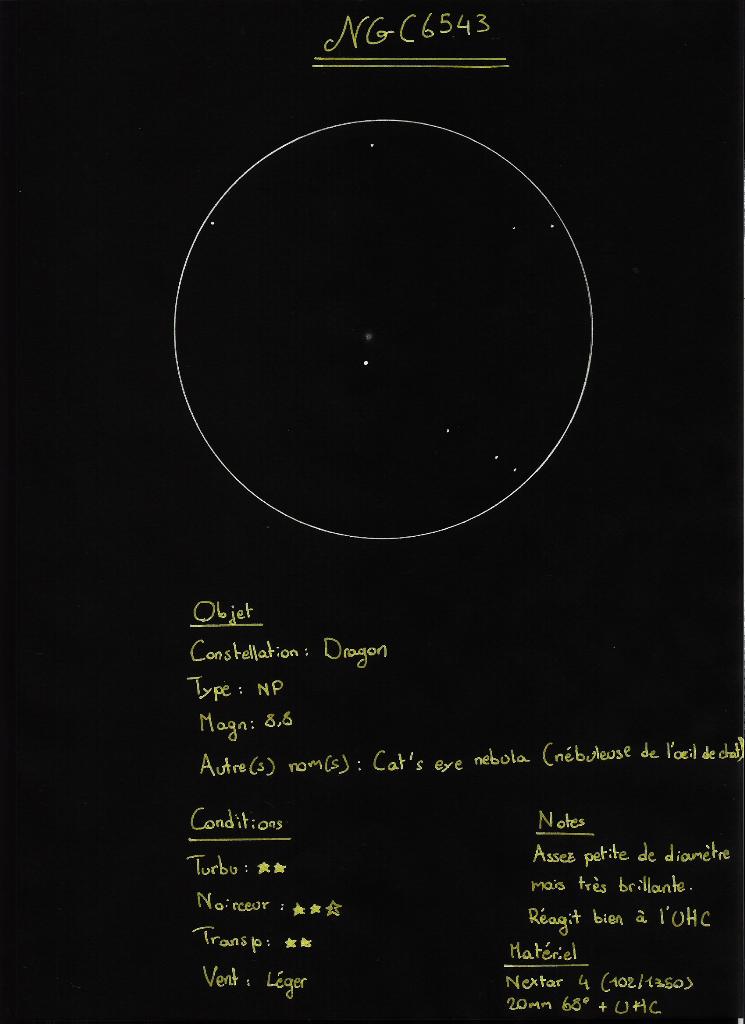 NGC6543
Objet
Constellation : Dragon
Type : NP
Magn : 8,8
Autre(s) nom(s) : Cat's eye nebula (nébuleuse de l'œil de chat)
Conditions
Turbu : ★★
Noirceur : ★★☆
Transp : ★★
Vent : Léger
Notes
Assez petite de diamètre
mais très brillante.
Réagit bien à l'UHC
Matériel
Nextar 4 (102/1350)
20mm 68° + UHC